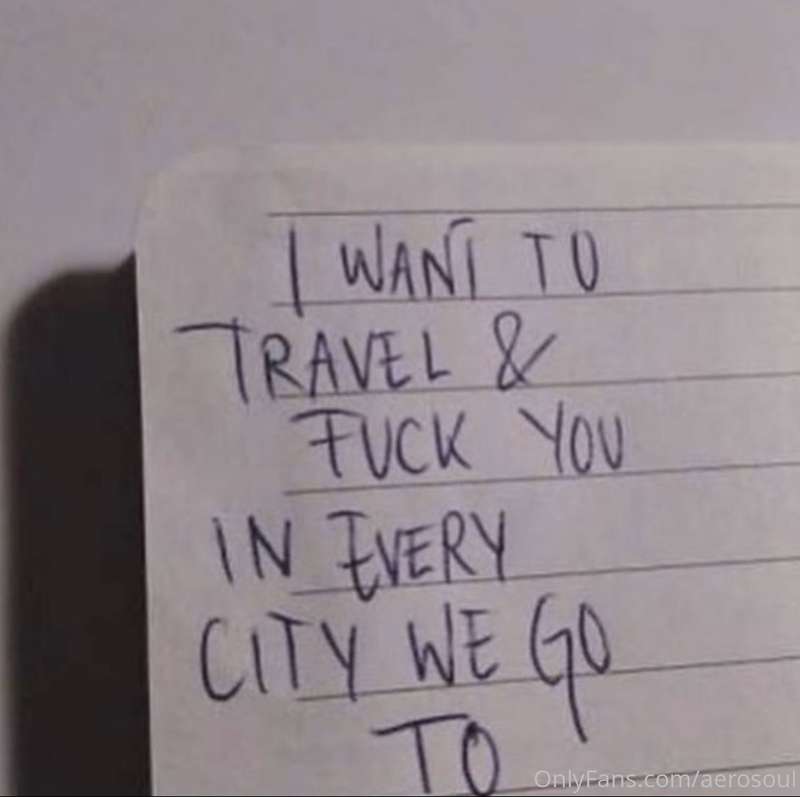 I WANT TO
TRAVEL &
FUCK YOU
IN EVERY
CITY WE GO
TO
OnlyFans.com/aerosoul